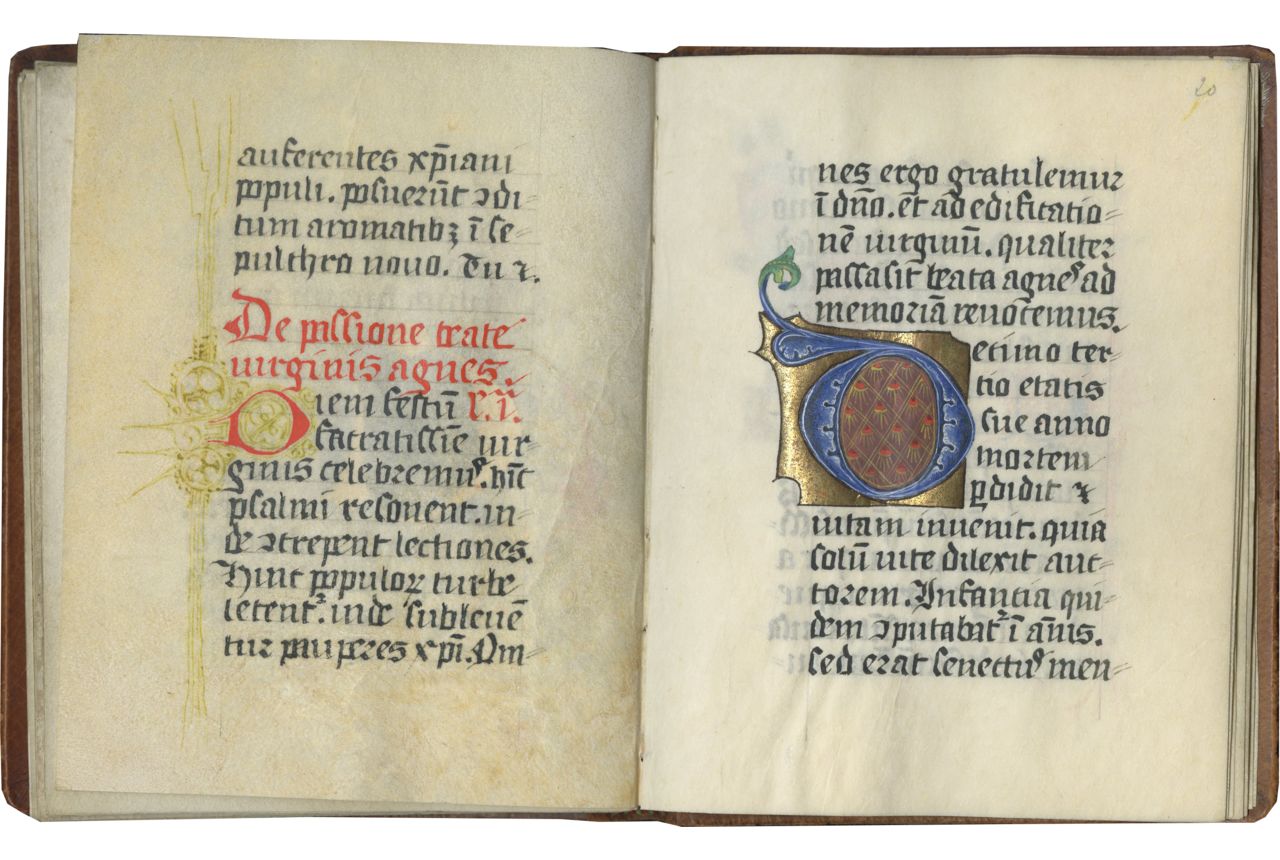 auferentes xp̄iani
populi. posuerūt ꝯdi=
tum aromatibꝫ ī se=
pulchro nouo. Tu ⁊.
De passione beate
uirginis agnes.
Diem festū l. i.
sacratissīe uir=
ginis celebremꝰ. hīc
psalmi resonent. in=
de ꝯcrepent lectiones.
Hinc populoꝝ turbe
letent᷑. inde subleuē=
tur pauperes xp̄i. Om=
20
nes ergo gratulemur
ī dn̄o. et ad edificatio=
nē uirginū. qualiter
passa sit beata agnes ad
memoriā reuocemus.
Decimo ter=
tio etatis
sue anno
mortem
ꝑdidit ⁊
uitam inuenit. quia
solū uite dilexit auc=
torem. Infancia qui=
dem ꝯputabat᷑ ī ānis.
sed erat senectꝰ men=